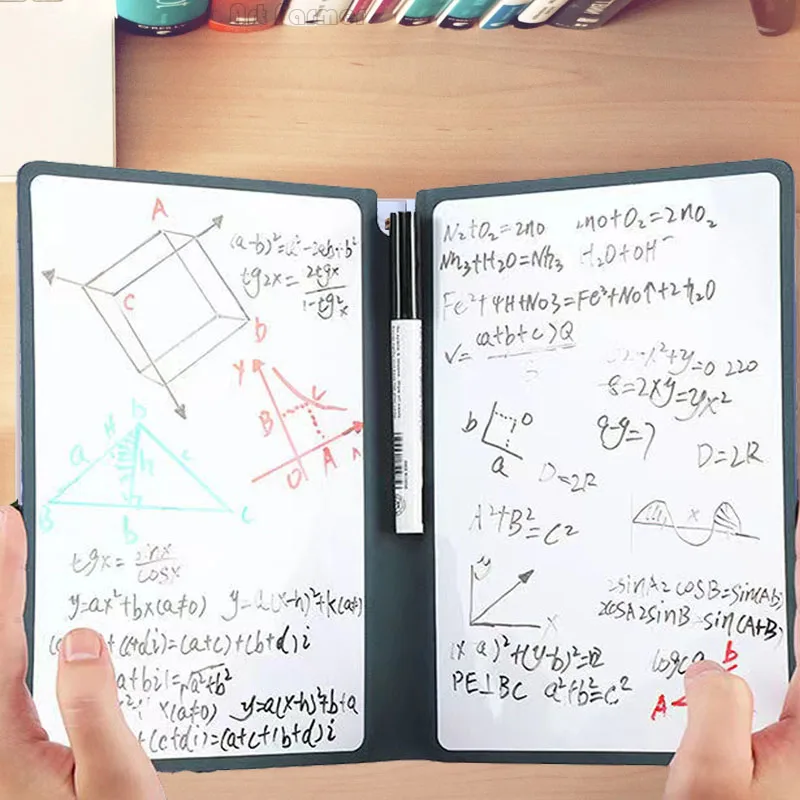 Art Farmer
A
(a-b)²=a²-2ab+b²
tg2x=2tgx/1-tg²x
C
D
Y
B
C
O
A
a
h
c
B
b
C
tgx=sinx/cosx
y=ax²+bx(a≠0) y=a(x-h)²+k(a≠
+(c+di)=(a+c)+(b+d)i
a+bi|=√a²+b²
x(a≠0) y=a(x-h)²+b+a
+(c+di)=(a+c+(b+d)i
N₂+O₂=2no 2no+O₂=2nO₂
Nh₃+H₂O=Nh₃ H₂O+OH⁻
Fe²+4H+No3=Fe³+No↑+2h₂O
√=(a+b+c)Q
x²+y=0 220
8=2xy=yx²
b
O
a
q-y=7
D=2R
D=2R
A²+B²=C²
x
y
X
2sinA2cosB=sin(Ab)
2cosA2sinB=sin(A+B)
(x a)²+(y-b)²=
logca
b
PE⊥BC a²+b²=c²
A<